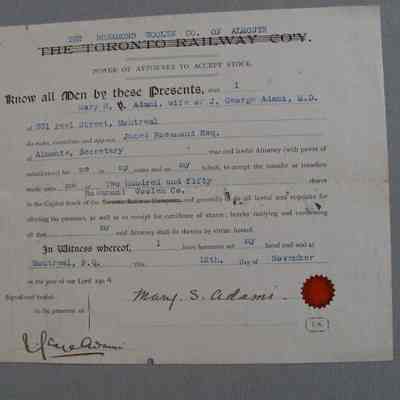 THE ROSAMOND WOOLEN CO. OF ALMONTE
THE TORONTO RAILWAY CO'Y.
POWER OF ATTORNEY TO ACCEPT STOCK.
Know all Men by these Presents, that I
Mary S. Adami, wife of J. George Adami, M.D.
of 331 Peel Street, Montreal
do make, constitute and appoint James Rosamond Esq.
of Almonte, Secretary my true and lawful Attorney (with power of
substitution) for me in my name and on my behalf, to accept the transfer or transfers
made unto me of Two hundred and fifty shares
Rosamond Woolen Co.
in the Capital Stock of the Toronto Railway Company, and generally to do all lawful acts requisite for
effecting the premises, as well as to receipt for certificate of shares; hereby ratifying and confirming
all that my said Attorney shall do therein by virtue hereof.
In Witness whereof, I have hereunto set my hand and seal at
Montreal, P.Q. this 12th. day of November
in the year of our Lord 190
Signed and Sealed
in the presence of
Mary S. Adami.
L.S.
Adami